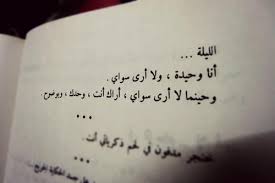 الليلة ...
أنا وحيدة ، ولا أرى سواي .
وحينما لا أرى سواي ، أراك أنت ، وحدك ، وبوضوح .
* * *
خنجر مدفون في لحم ذكرياتي أنت .
* * *